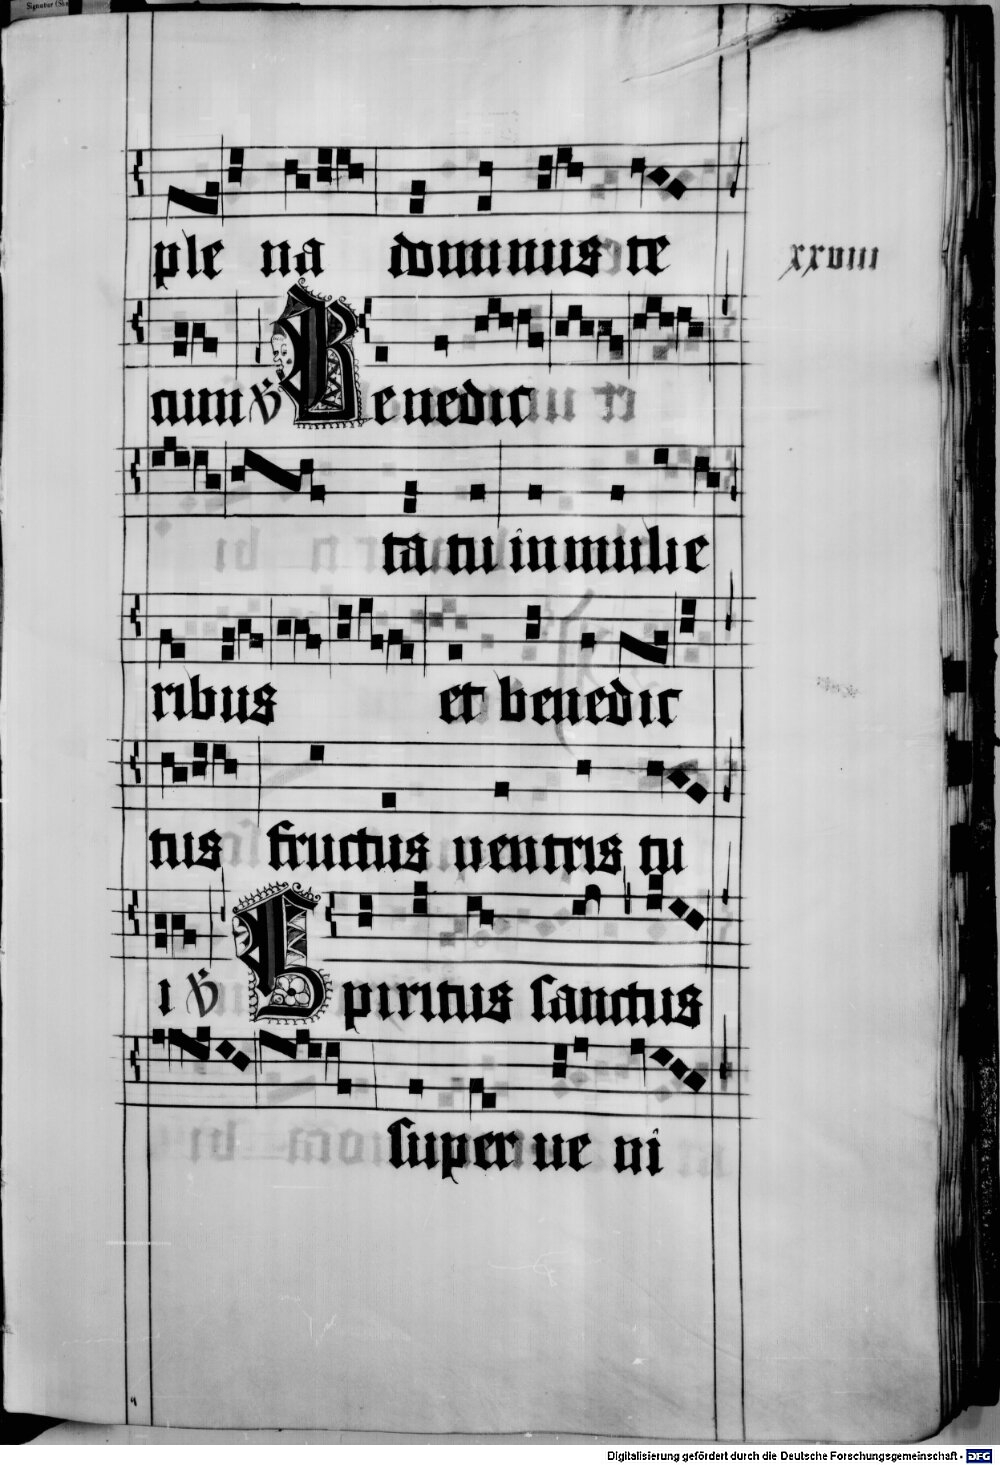 Signatur
ple na dominus te
xxviii
cum ℣ Benedic
ta tu in mulie
ribus et benedic
tus fructus ventris tu
i ℣ Spiritus sanctus
super ve ni
Digitalisierung gefördert durch die Deutsche Forschungsgemeinschaft - DFG